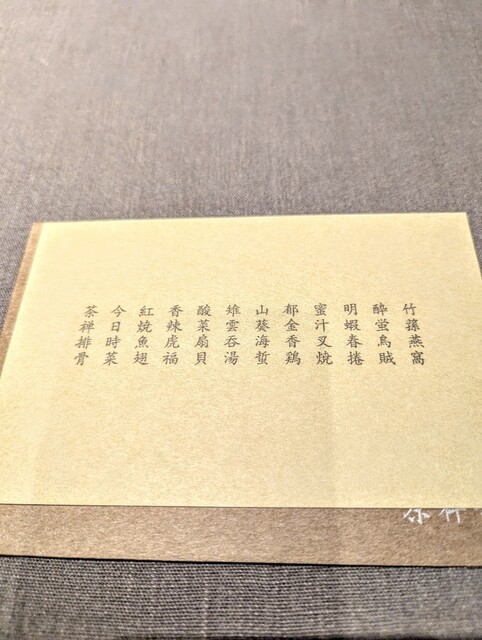 竹蓀燕窩
醉蛍烏賊
明蝦春捲
蜜汁叉焼
郁金香鶏
山葵海蜇
雉雲吞湯
酸菜扇貝
香辣虎福
紅焼魚翅
今日時菜
茶禅排骨